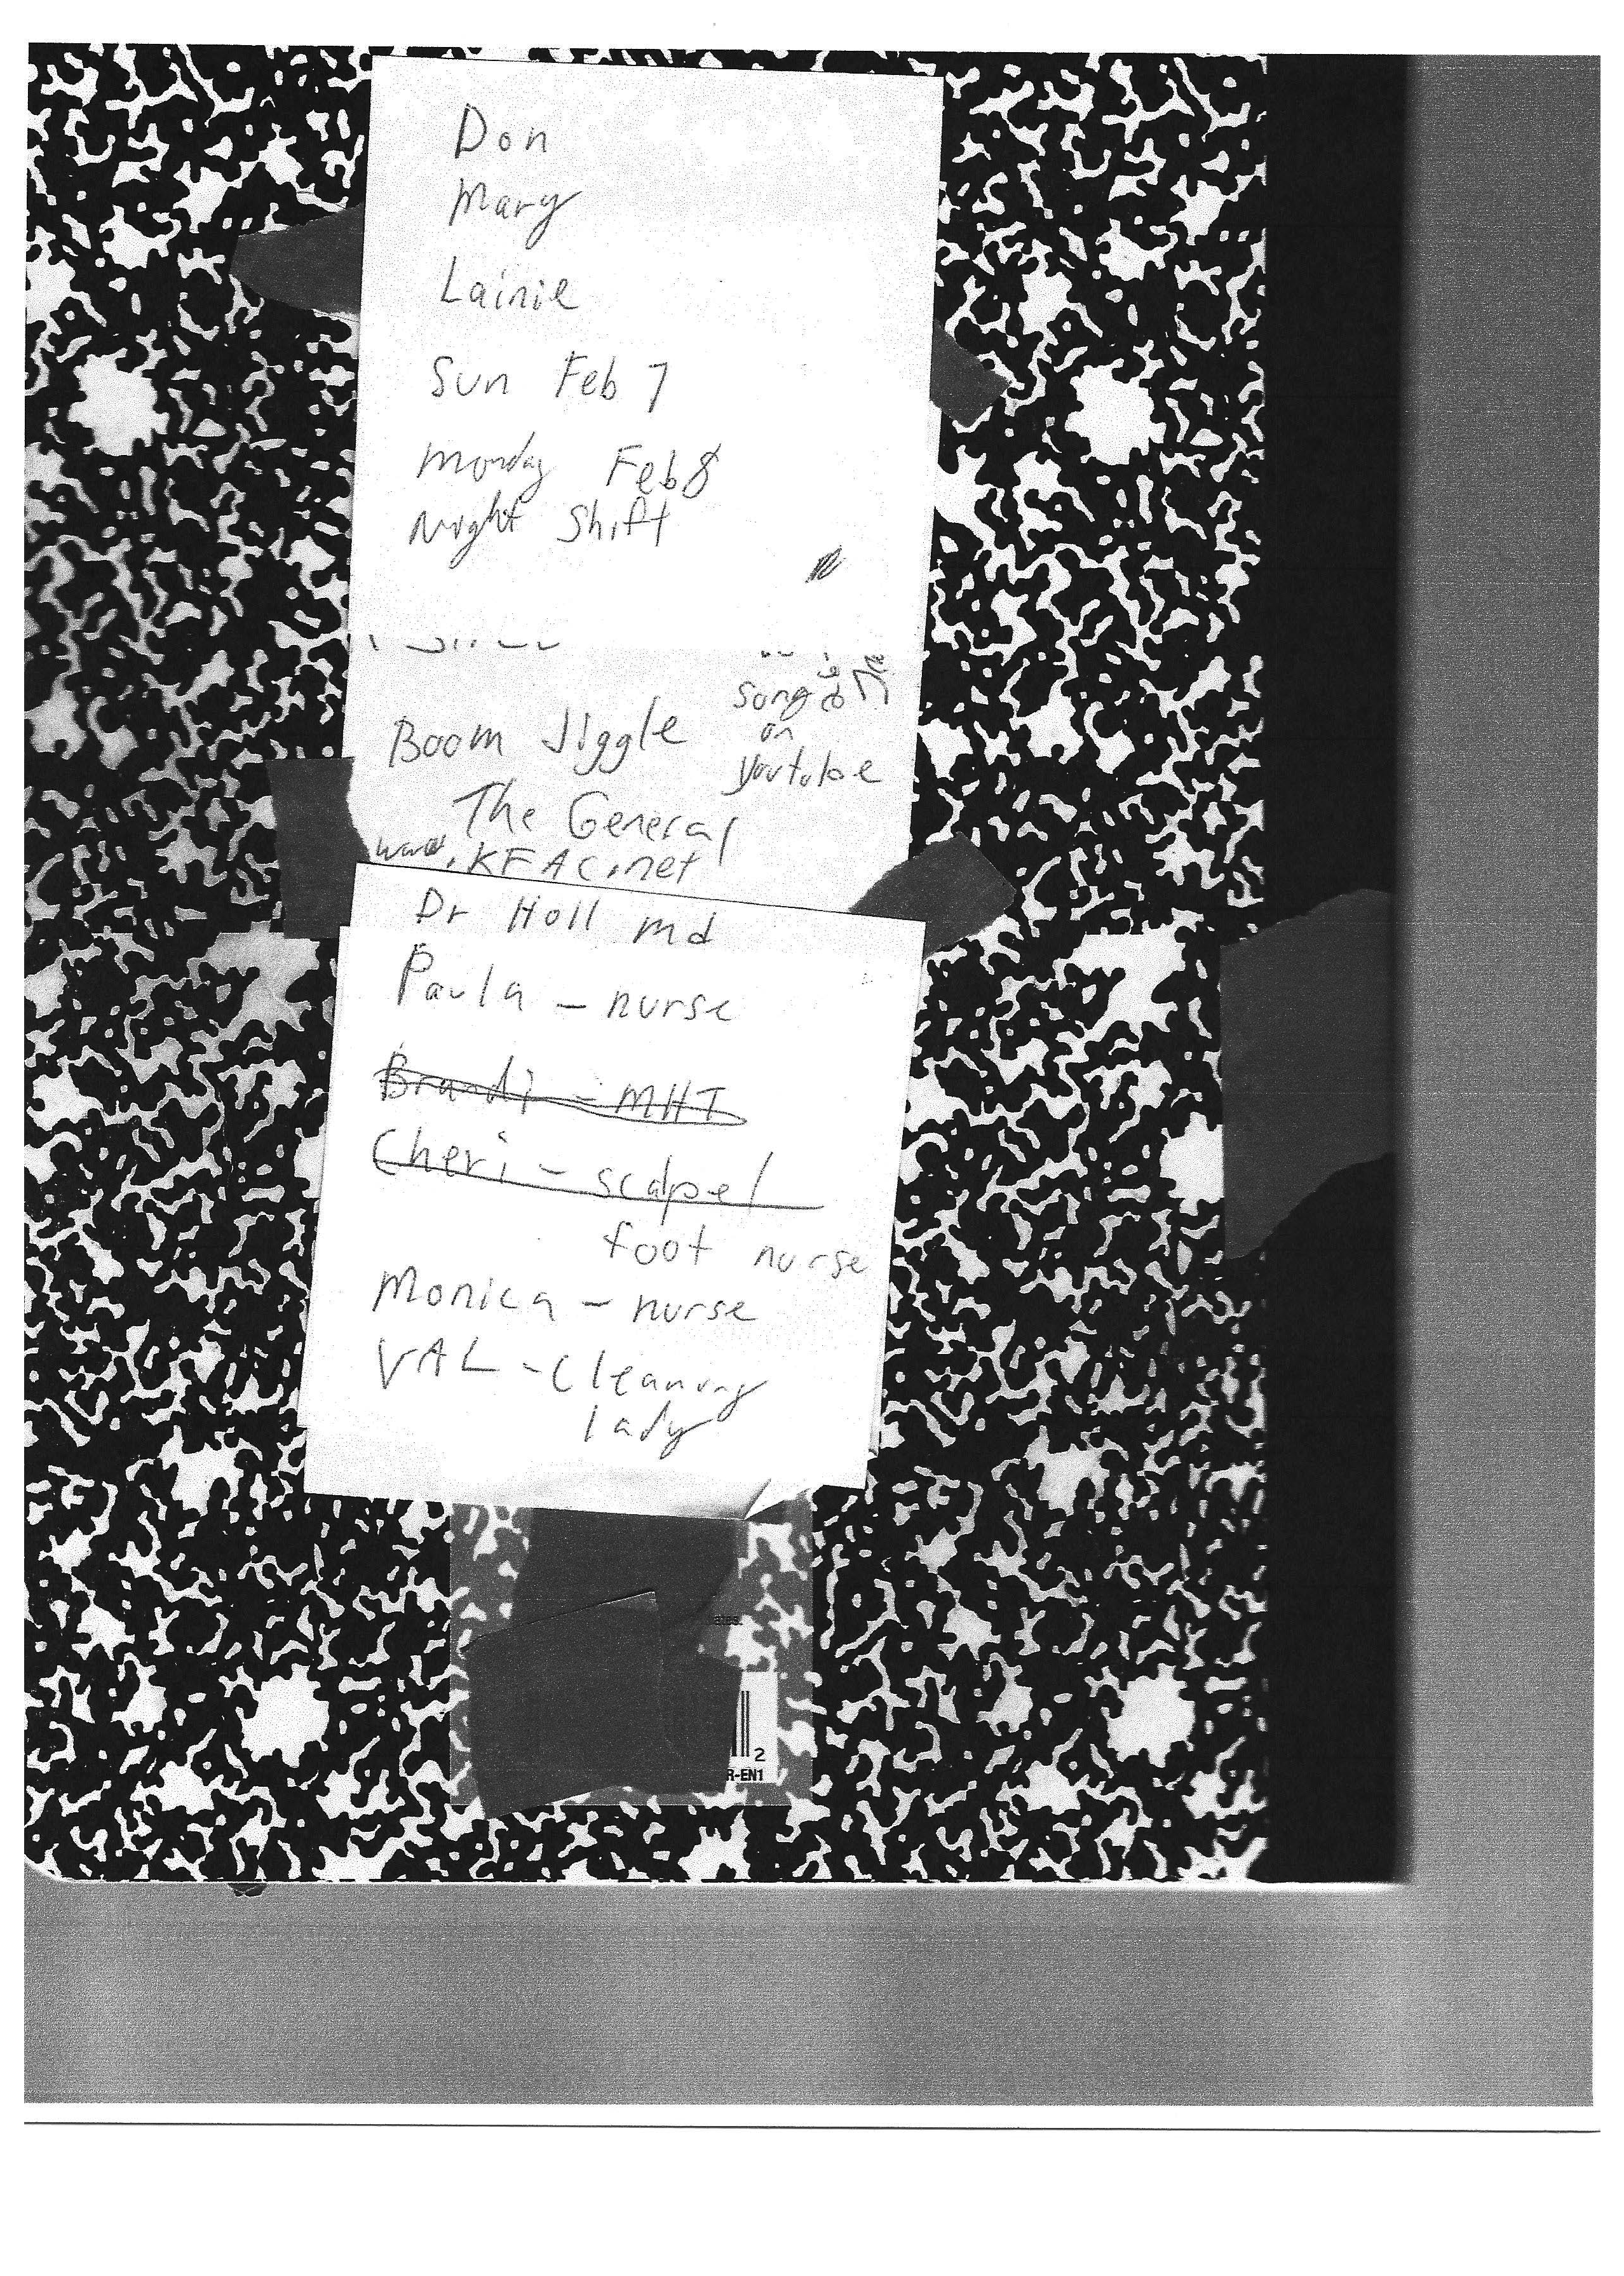 Don
Mary
Lainie
Sun Feb 7
Monday Feb 8
Night Shift
song
on
Boom Jiggle
youtube
The General
www.KFAC.net
Dr Holl md
Paula - nurse
Brandi - MHT
Cheri - scalpel
foot nurse
Monica - nurse
VAL - Cleaning
lady
ates.
2
R-EN1